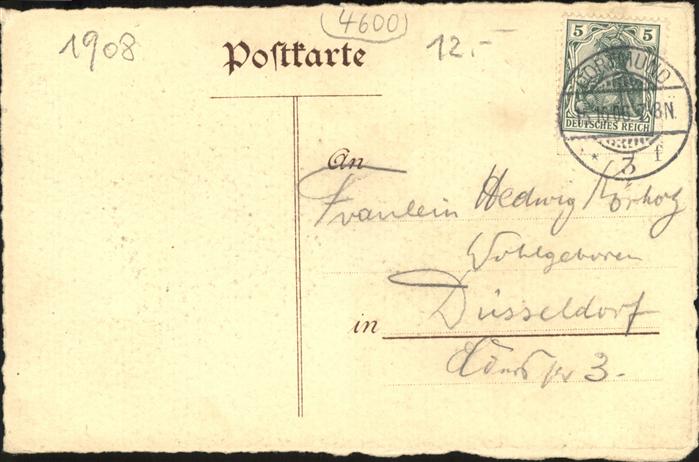 (4600)
1908
Postkarte
12.-
5 5
DEUTSCHES REICH
DORTMUND
* 3 f
An
Fräulein Hedwig
Wohlgeboren
in Düsseldorf
3.